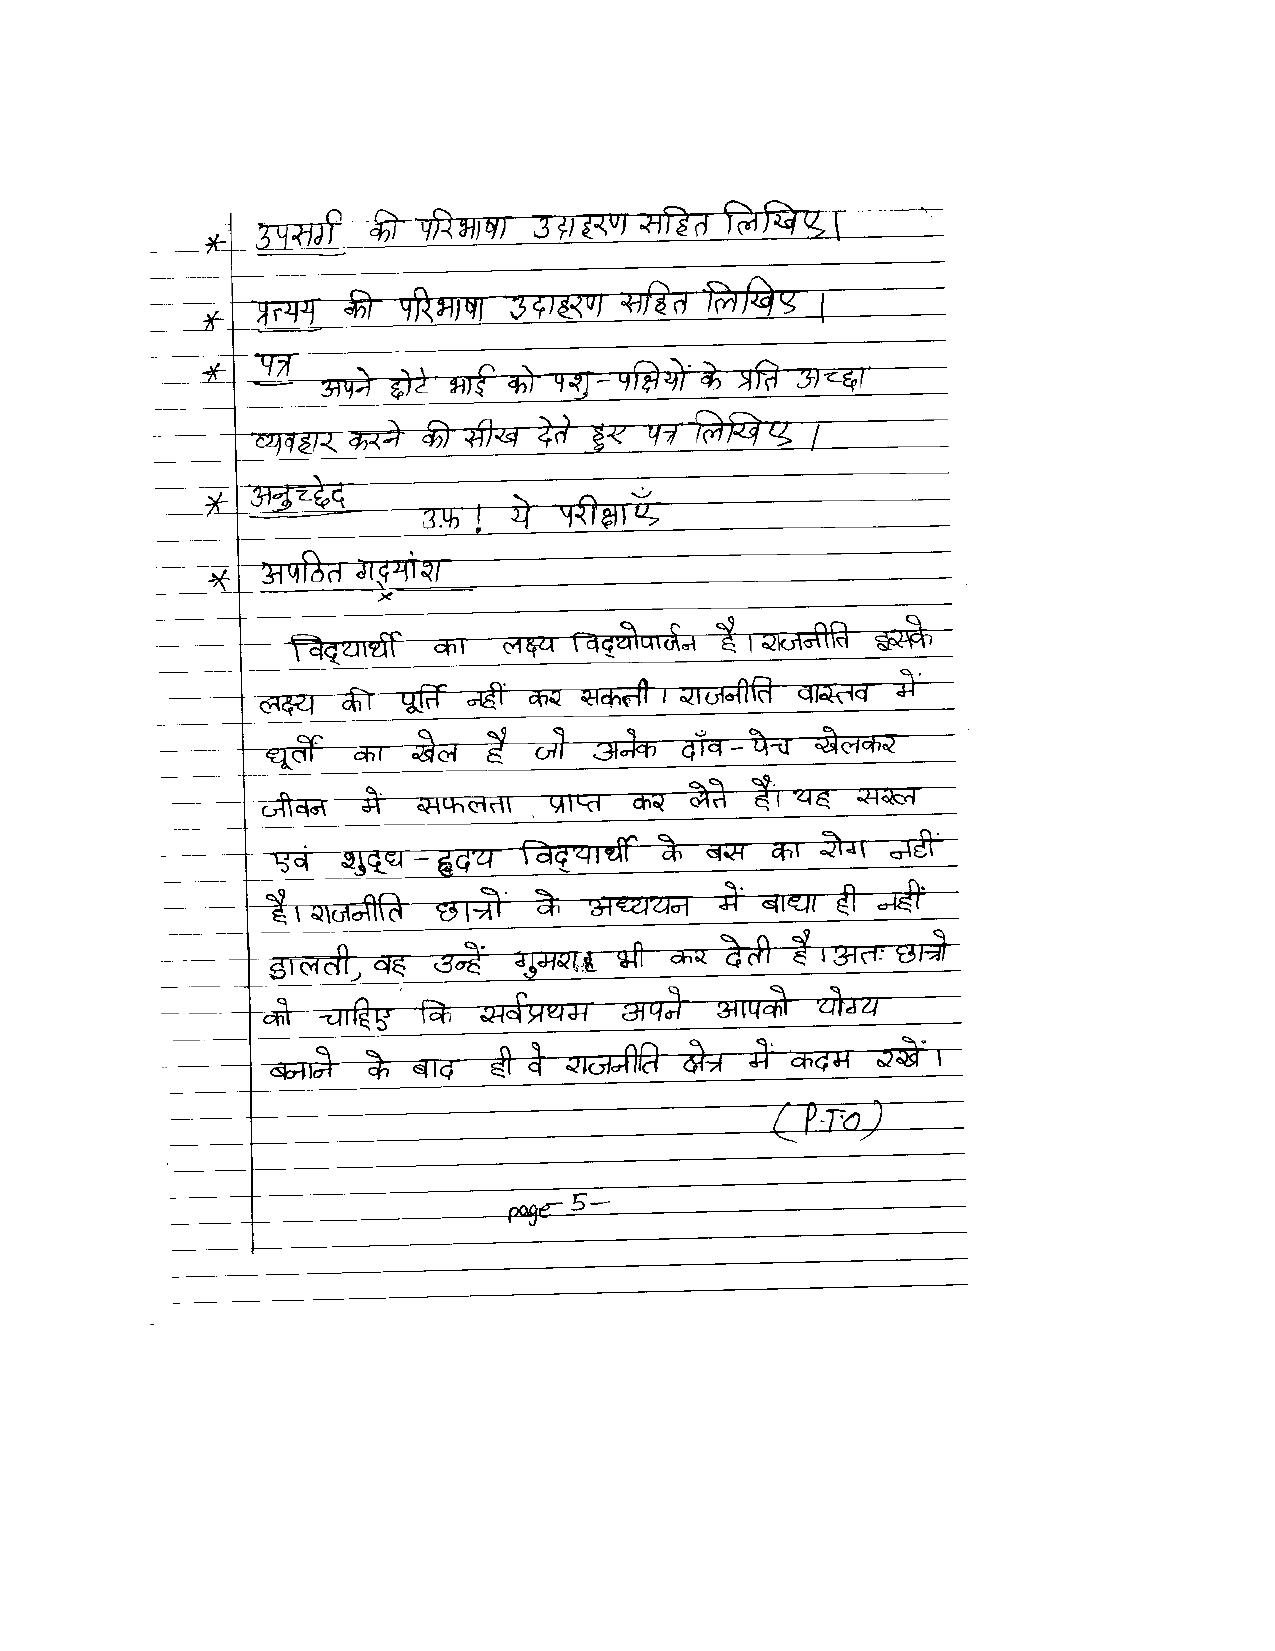 * उपसर्ग की परिभाषा उदाहरण सहित लिखिए।
* प्रत्यय की परिभाषा उदाहरण सहित लिखिए।
* पत्र
अपने छोटे भाई को पशु-पक्षियों के प्रति अच्छा
व्यवहार करने की सीख देते हुए पत्र लिखिए।
* अनुच्छेद
उफ! ये परीक्षाएँ
* अपठित गद्यांश
विद्यार्थी का लक्ष्य विद्योपार्जन है। राजनीति इसके
लक्ष्य की पूर्ति नहीं कर सकती। राजनीति वास्तव में
धूर्तो का खेल है जो अनेक दाँव-पेच खेलकर
जीवन में सफलता प्राप्त कर लेते हैं। यह सरल
एवं शुद्ध-हृदय विद्यार्थी के बस का रोग नहीं
है। राजनीति छात्रों के अध्ययन में बाधा ही नहीं
डालती, वह उन्हें गुमराह भी कर देती है। अतः छात्रो
को चाहिए कि सर्वप्रथम अपने आपको योग्य
बनाने के बाद ही वे राजनीति क्षेत्र में कदम रखें।
(P.T.O)
page-5-